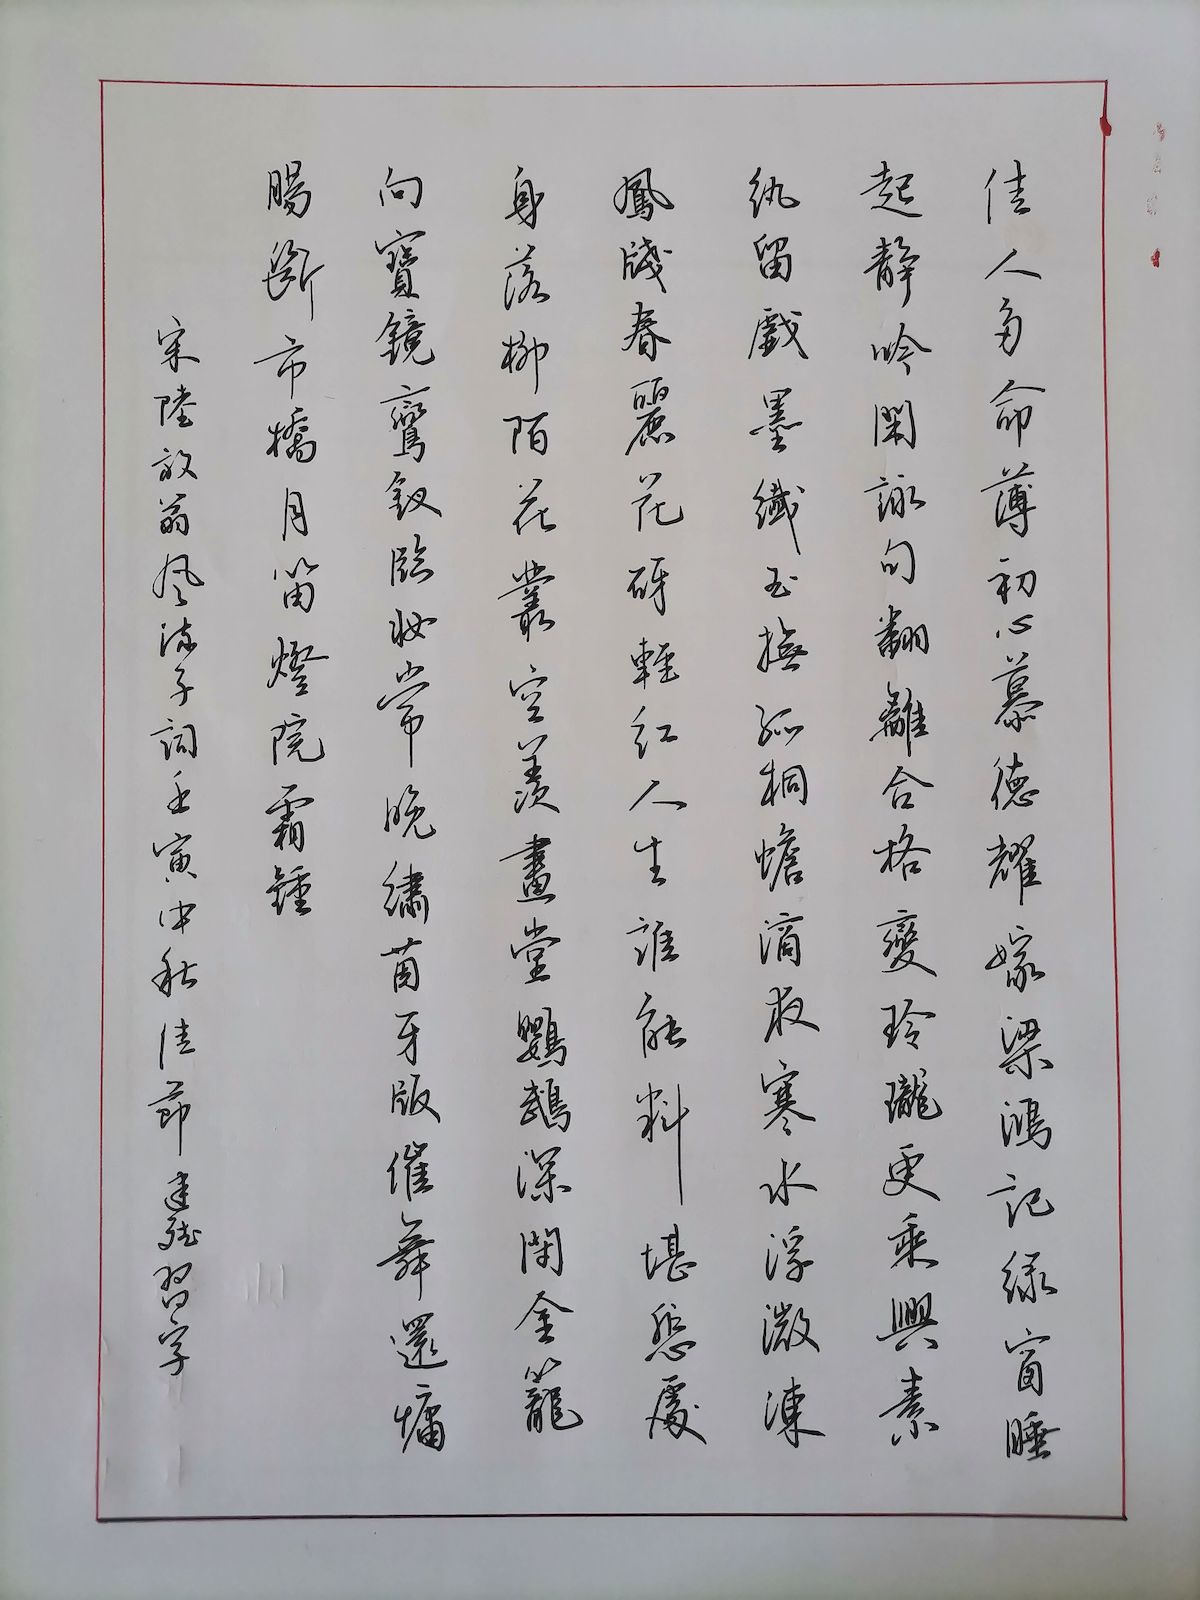 佳人多命薄初心慕德耀嫁梁鴻記綠窗睡
起靜吟閑詠句翻離合格變玲瓏更乘興素
紈留戲墨纖玉撫孤桐蟾滴夜寒水浮微凍
鳳牋春麗花砑輕紅人生誰能料堪悲處
身落柳陌花叢空羨畫堂鸚鵡深閉金籠
向寶鏡鸞釵臨妝常晚繡茵牙版催舞還慵
腸斷市橋月笛燈院霜鍾
宋陸放翁風流子詞壬寅中秋佳節建強習字